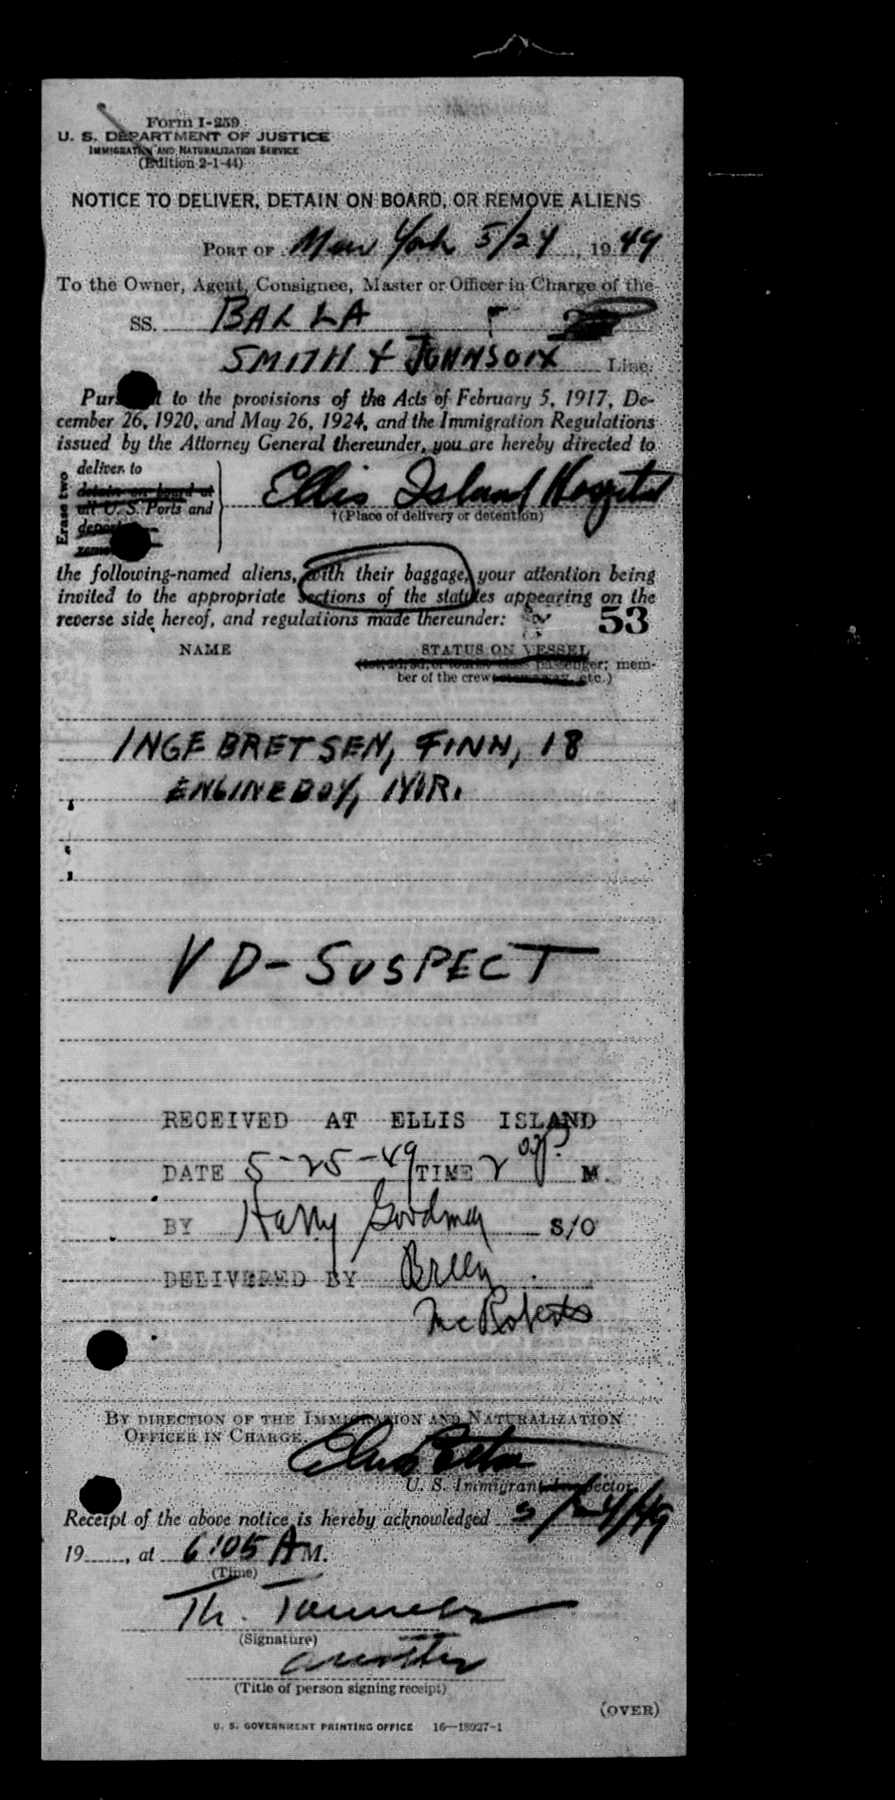 Form I-259
U. S. DEPARTMENT OF JUSTICE
IMMIGRATION AND NATURALIZATION SERVICE
(Edition 2-1-44)
NOTICE TO DELIVER, DETAIN ON BOARD, OR REMOVE ALIENS
PORT OF New York 5/24, 1949
To the Owner, Agent, Consignee, Master or Officer in Charge of the
SS. BALLA
SMITH & JOHNSON Line.
Pursuant to the provisions of the Acts of February 5, 1917, De-
cember 26, 1920, and May 26, 1924, and the Immigration Regulations
issued by the Attorney General thereunder, you are hereby directed to
Erase two
deliver to
detain on board at
all U. S. Ports and
Ellis Island Hospital
†(Place of delivery or detention)
the following-named aliens, with their baggage, your attention being
invited to the appropriate sections of the statutes appearing on the
reverse side hereof, and regulations made thereunder:
53
NAME
STATUS ON VESSEL
passenger; mem-
ber of the crew etc.)
INGEBRETSEN, FINN, 18
ENGINEBOY, NOR.
VD-SUSPECT
RECEIVED AT ELLIS ISLAND
DATE 5-25-49 TIME 2 M.
BY Harry Goodman S/O
DELIVERED BY Breen
McRoberts
BY DIRECTION OF THE IMMIGRATION AND NATURALIZATION
OFFICER IN CHARGE.
U. S. Immigrant Inspector.
Receipt of the above notice is hereby acknowledged 5/24/49
19, at 6:05 A M.
(Time)
Th.
(Signature)
(Title of person signing receipt)
(OVER)
U. S. GOVERNMENT PRINTING OFFICE 16—18927-1